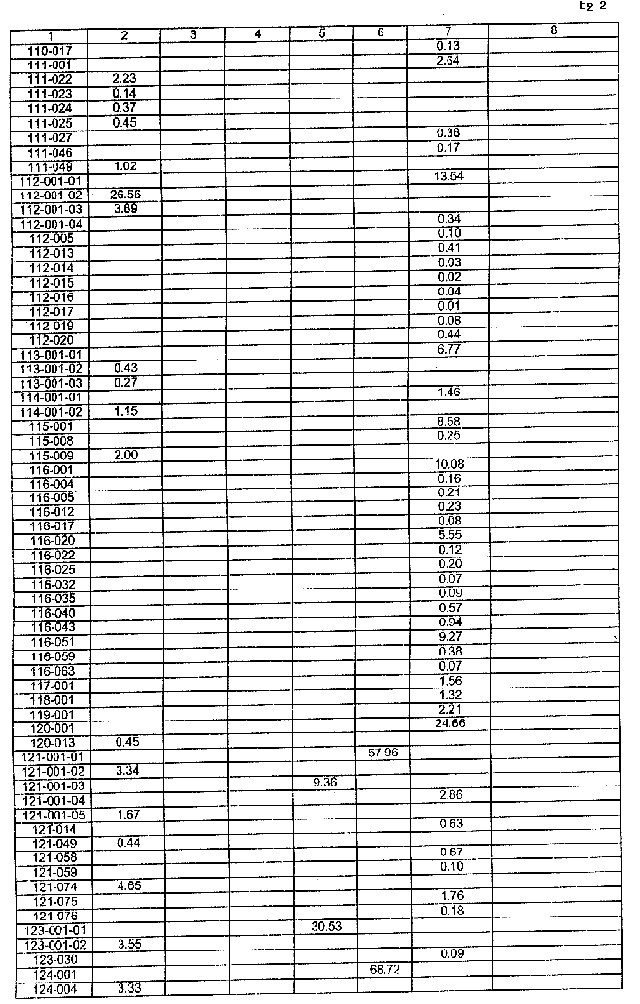 tg 2
1 2 3 4 5 6 7 8
110-017 0.13
111-001 2.54
111-022 2.23
111-023 0.14
111-024 0.37
111-025 0.45
111-027 0.38
111-046 0.17
111-049 1.02
112-001-01 13.54
112-001-02 26.56
112-001-03 3.69
112-001-04 0.34
112-005 0.10
112-013 0.41
112-014 0.03
112-015 0.02
112-016 0.04
112-017 0.01
112-019 0.08
112-020 0.44
113-001-01 6.77
113-001-02 0.43
113-001-03 0.27
114-001-01 1.46
114-001-02 1.15
115-001 8.58
115-008 0.25
115-009 2.00
116-001 10.08
116-004 0.16
116-005 0.21
116-012 0.23
116-017 0.08
116-020 5.55
116-022 0.12
116-025 0.20
116-032 0.07
116-035 0.09
116-040 0.57
116-043 0.94
116-051 9.27
116-059 0.38
116-063 0.07
117-001 1.56
118-001 1.32
119-001 2.21
120-001 24.66
120-013 0.45
121-001-01 57.96
121-001-02 3.34
121-001-03 9.36
121-001-04 2.86
121-001-05 1.67
121-014 0.63
121-049 0.44
121-058 0.67
121-059 0.10
121-074 4.65
121-075 1.76
121-076 0.18
123-001-01 30.53
123-001-02 3.55
123-030 0.09
124-001 68.72
124-004 3.33